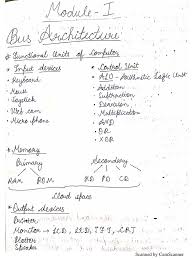 Module - I
Bus Architecture
* Functional Units of Computer
* Input devices
* Keyboard
* Mouse
* Joystick
* Web cam
* Micro phone
* Control Unit
* ALU - Arithmetic Logic Unit
* Addition
* Subtraction
* Division
* Multiplication
* AND
* OR
* XOR
* Memory
Primary Secondary
RAM ROM HD PD CD
XD
Cloud space
* Output devices
Printer
Monitor - LCD, LED, TFT, CRT
Plotter
Speaker
Scanned by CamScanner